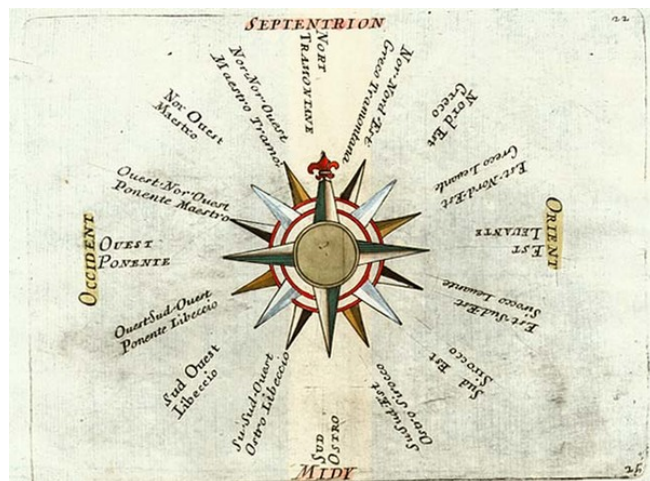 SEPTENTRION
22
NORT
TRAMONTANE
Nor-Nord-Est
Greco Tramontana
Nord Est
Greco
Est-Nord-Est
Greco Levante
ORIENT
EST
LEUANTE
Est-Sud-Est
Sirocco Levante
Sud Est
Sirocco
Sud Sud Est
Ostro Sirocco
SUD
OSTRO
MIDY
Su-Sud-Ouest
Ostro Libeccio
Sud Ouest
Libeccio
Ouest-Sud-Ouest
Ponente Libeccio
OCCIDENT
OUEST
PONENTE
Ouest-Nor-Ouest
Ponente Maestro
Nor Ouest
Maestro
Nor-Nor-Ouest
Maestro Tramo.